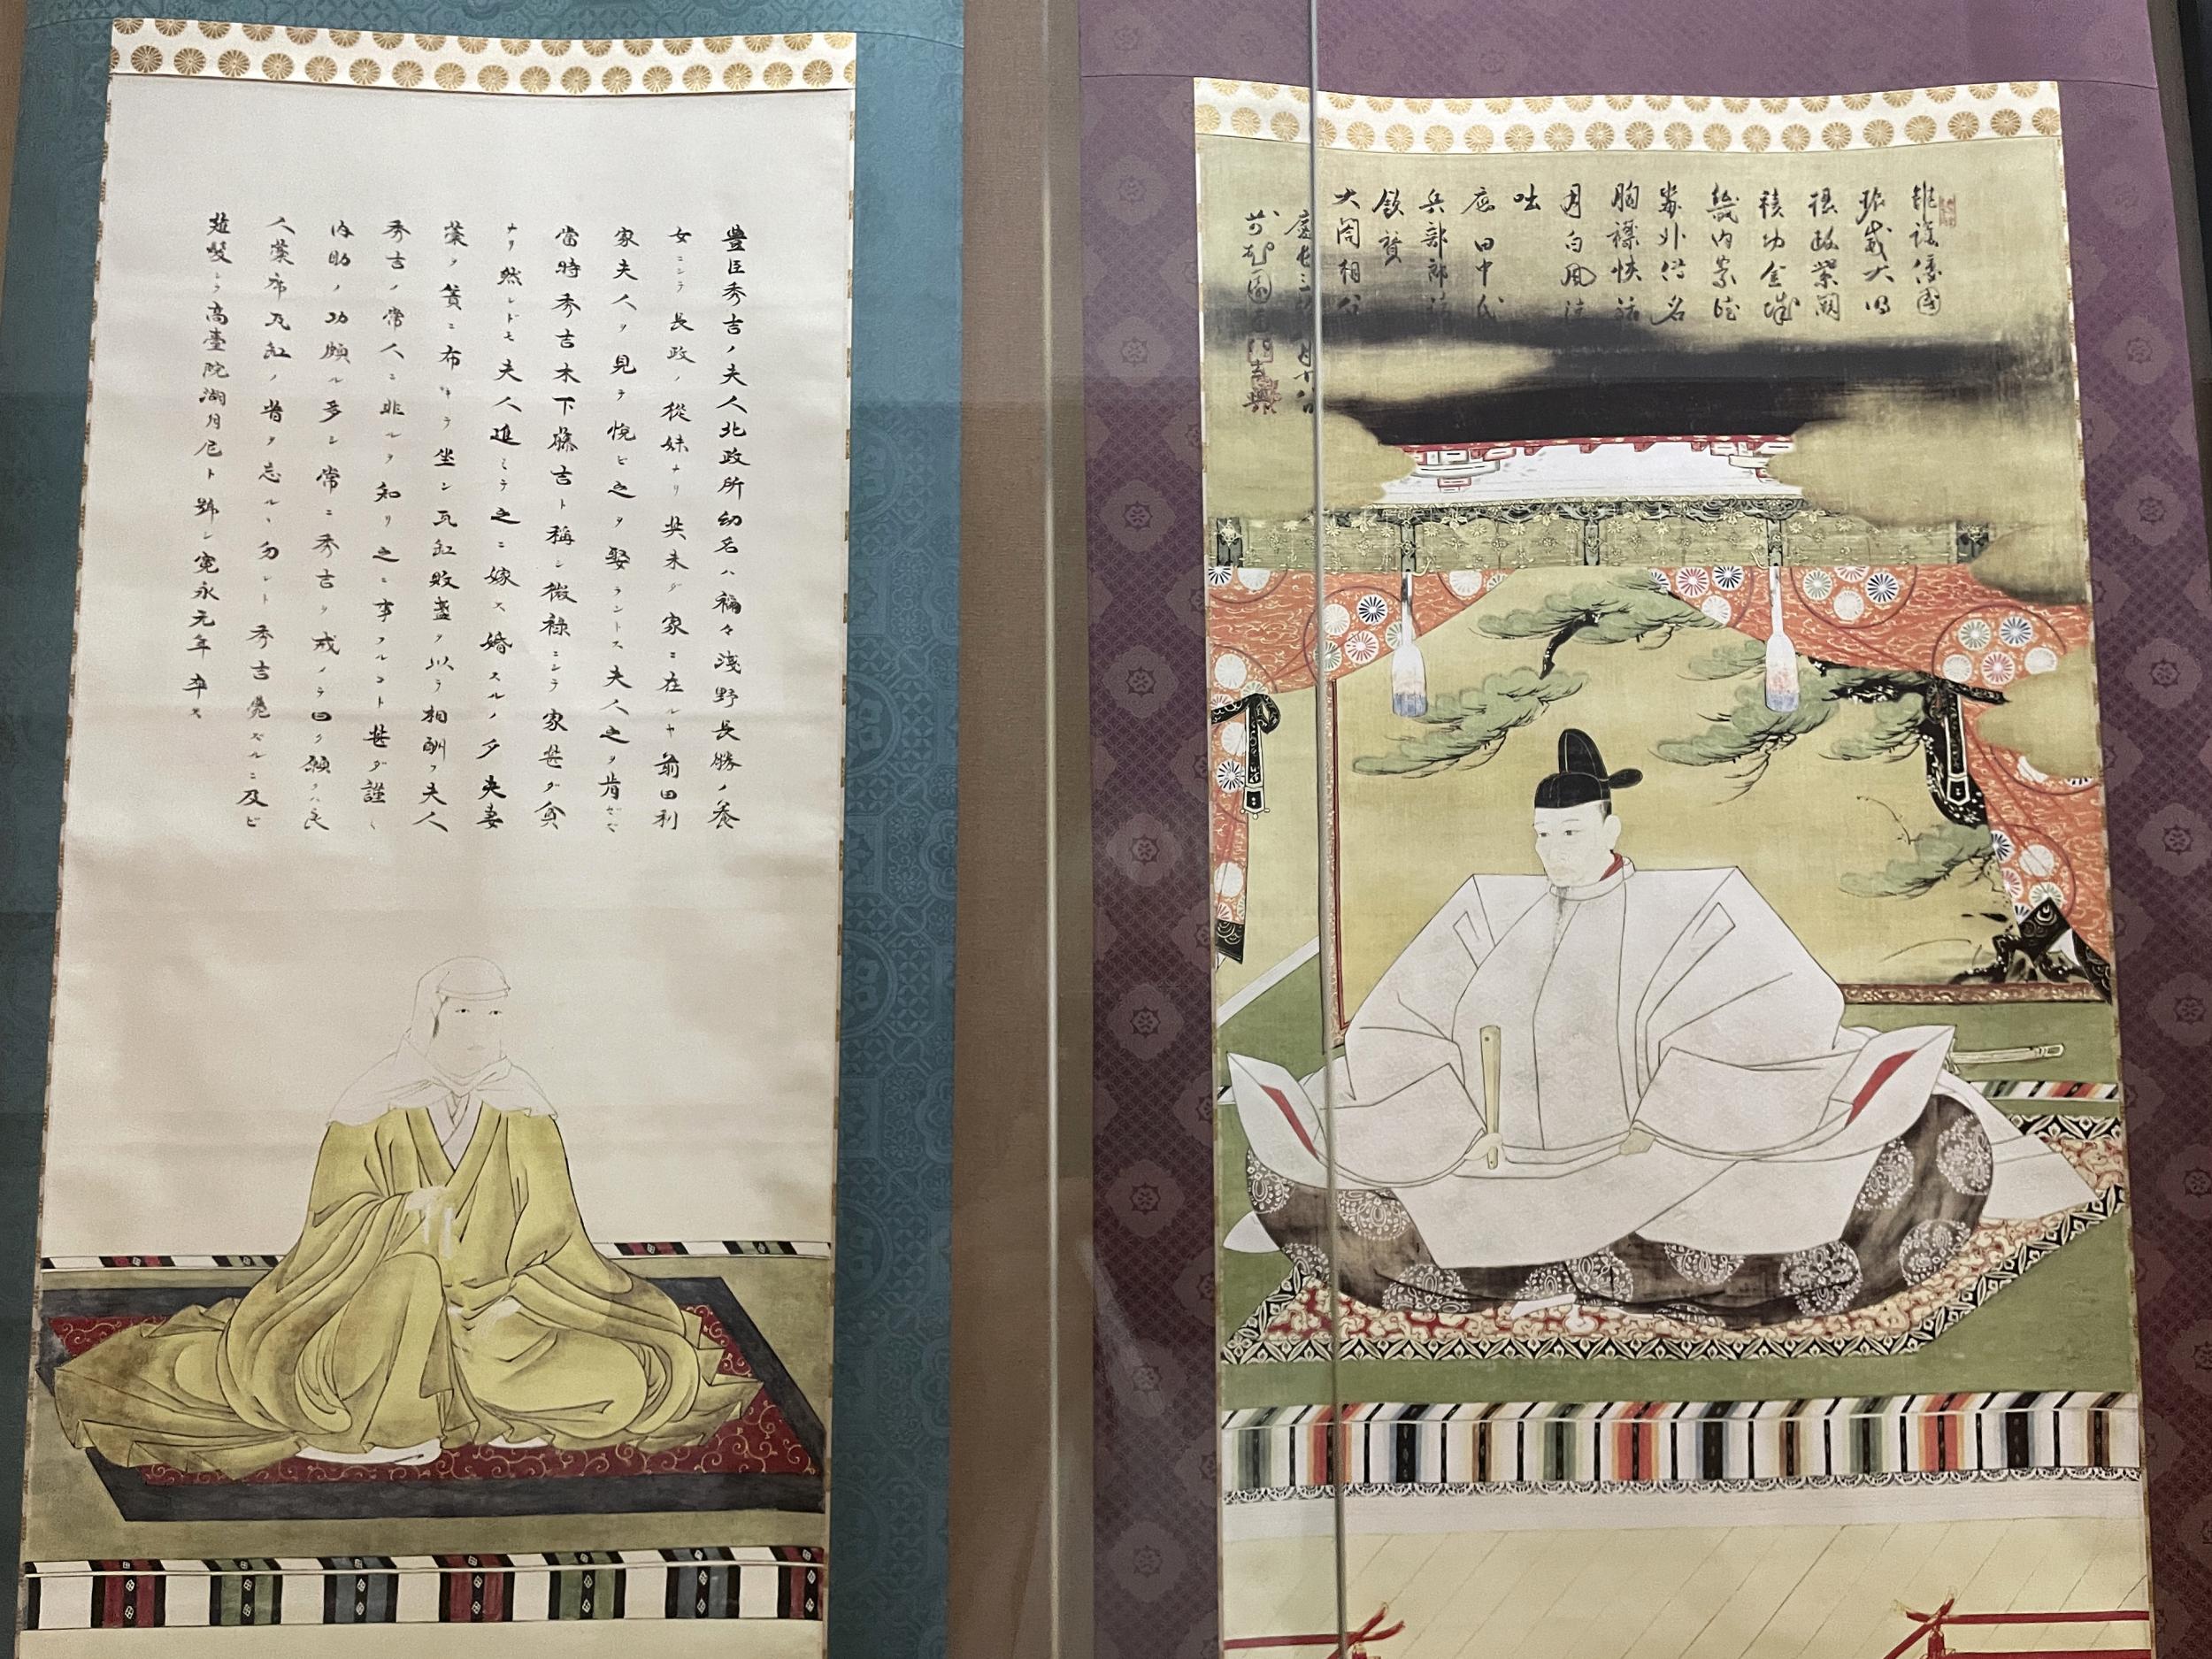 振威大明
攝政紫闕
積功金城
畿内崇徳
胸襟快活
月白風清
咄
田中氏
兵部郎請
欽賛
大閤相公
慶長三
豊臣秀吉ノ夫人北政所幼名ハ禰々淺野長勝ノ養
女ニシテ長政ノ從妹ナリ其未ダ家ニ在ルヤ前田利
家夫人ヲ見テ悦ビ之ヲ娶ラントス夫人之ヲ肯ゼズ
當時秀吉木下藤吉ト稱シ微祿ニシテ家甚ダ貧
ナリ然レドモ夫人進ミテ之ニ嫁ス婚スルノ夕夫妻
藁ヲ簀ニ布キテ坐シ瓦缸敗盞ヲ以テ相酬フ夫人
秀吉ノ常人ニ非ルヲ知リ之ニ事フルコト甚ダ謹シ
内助ノ功頗ル多シ常ニ秀吉ヲ戒メテ曰ク願クハ良
人藁席瓦缸ノ昔ヲ忘ルヽ勿レト秀吉薨ズルニ及ビ
薙髪シテ高臺院湖月尼ト號シ寛永元年卒ス